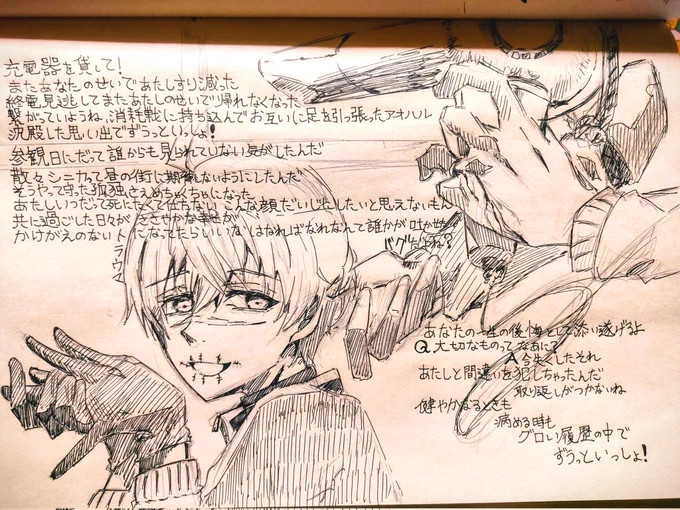 充電器を貸して！
またあなたのせいであたしすり減った
終電見逃してまたあたしのせいで帰れなくなった
繋がっていようね、消耗戦に持ち込んでお互いに足を引っ張ったアオハル
沢殿した思い出でずうっといっしょ！
参観日にだって誰からも見られていない気がしたんだ
散々シニカって昼の街に期待しないようにしたんだ
そうやって守った孤独さえめちゃくちゃになった
あたしいつだって死にたくて仕方ない こんな顔だいじにしたいと思えないもん
共に過ごした日々が ささやかな幸せが
かけがえのないトラウマになってたらいいな はなればなれなんて誰かが吐かせた
バグだよね？
あなたの一生の後悔として添い遂げるよ
Q 大切なものってなあに？
A 今失くしたそれ
あたしと間違いを犯しちゃったんだ
取り返しがつかないね
健やかなるときも
病める時も
グロい履歴の中で
ずうっといっしょ！